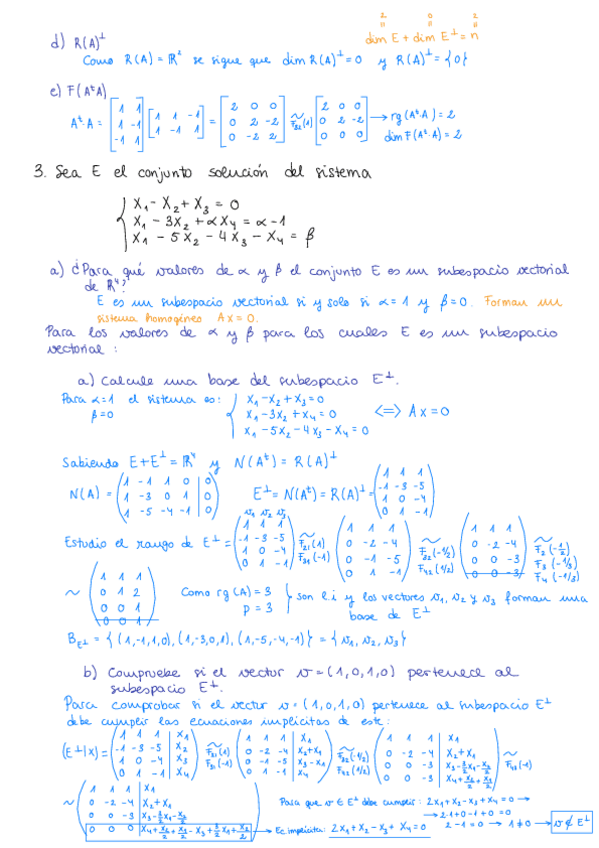 2 0 2
dim E + dim E⊥ = n
d) R(A)⊥
Como R(A) = R² se sigue que dim R(A)⊥ = 0 y R(A)⊥ = {0}
e) F(AᵗA)
Aᵗ·A = [1 1; 1 -1; -1 1] [1 1 -1; 1 -1 1] = [2 0 0; 0 2 -2; 0 -2 2] ~ F₃₂(1) [2 0 0; 0 2 -2; 0 0 0] → rg(Aᵗ·A) = 2
dim F(Aᵗ·A) = 2
3. Sea E el conjunto solución del sistema
x₁ - x₂ + x₃ = 0
x₁ - 3x₂ + αx₄ = α - 1
x₁ - 5x₂ - 4x₃ - x₄ = β
a) ¿Para qué valores de α y β el conjunto E es un subespacio vectorial
de R⁴?
E es un subespacio vectorial si y solo si α = 1 y β = 0. Forman un
sistema homogéneo Ax = 0.
Para los valores de α y β para los cuales E es un subespacio
vectorial:
a) Calcule una base del subespacio E⊥.
Para α = 1 el sistema es: x₁ - x₂ + x₃ = 0
β = 0 x₁ - 3x₂ + x₄ = 0 <=> Ax = 0
x₁ - 5x₂ - 4x₃ - x₄ = 0
Sabiendo E + E⊥ = R⁴ y N(Aᵗ) = R(A)⊥
N(A) = (1 -1 1 0 | 0; 1 -3 0 1 | 0; 1 -5 -4 -1 | 0) E⊥ = N(Aᵗ) = R(A)⊥ = (1 1 1; -1 -3 -5; 1 0 -4; 0 1 -1)
v₁ v₂ v₃
Estudio el rango de E⊥ = (1 1 1; -1 -3 -5; 1 0 -4; 0 1 -1) ~ F₂₁(1) F₃₁(-1) (1 1 1; 0 -2 -4; 0 -1 -5; 0 1 -1) ~ F₃₂(-1/2) F₄₂(1/2) (1 1 1; 0 -2 -4; 0 0 -3; 0 0 -3) ~ F₂(-1/2) F₃(-1/3) F₄(-1/3)
~ (1 1 1; 0 1 2; 0 0 1; 0 0 1) Como rg(A) = 3
p = 3 } son l.i y los vectores v₁, v₂ y v₃ forman una
base de E⊥
B_E⊥ = {(1,-1,1,0), (1,-3,0,1), (1,-5,-4,-1)} = {v₁, v₂, v₃}
b) Compruebe si el vector v = (1,0,1,0) pertenece al
subespacio E⊥.
Para comprobar si el vector v = (1,0,1,0) pertenece al subespacio E⊥
debe cumplir las ecuaciones implícitas de este:
(E⊥|x) = (1 1 1 | x₁; -1 -3 -5 | x₂; 1 0 -4 | x₃; 0 1 -1 | x₄) ~ F₂₁(1) F₃₁(-1) (1 1 1 | x₁; 0 -2 -4 | x₂+x₁; 0 -1 -5 | x₃-x₁; 0 1 -1 | x₄) ~ F₃₂(-1/2) F₄₂(1/2) (1 1 1 | x₁; 0 -2 -4 | x₂+x₁; 0 0 -3 | x₃-3/2x₁-x₂/2; 0 0 -3 | x₄+x₂/2+x₁/2) ~ F₄₃(-1)
~ (1 1 1 | x₁; 0 -2 -4 | x₂+x₁; 0 0 -3 | x₃-3/2x₁-x₂/2; 0 0 0 | x₄+x₂/2+x₁/2-x₃+3/2x₁+x₂/2)
Para que v ∈ E⊥ debe cumplir: 2x₁+x₂-x₃+x₄ = 0 →
→ 2·1+0-1+0 = 0
→ Ec. implícita: 2x₁+x₂-x₃+x₄ = 0 2-1 = 0 → 1 ≠ 0 → v ∉ E⊥